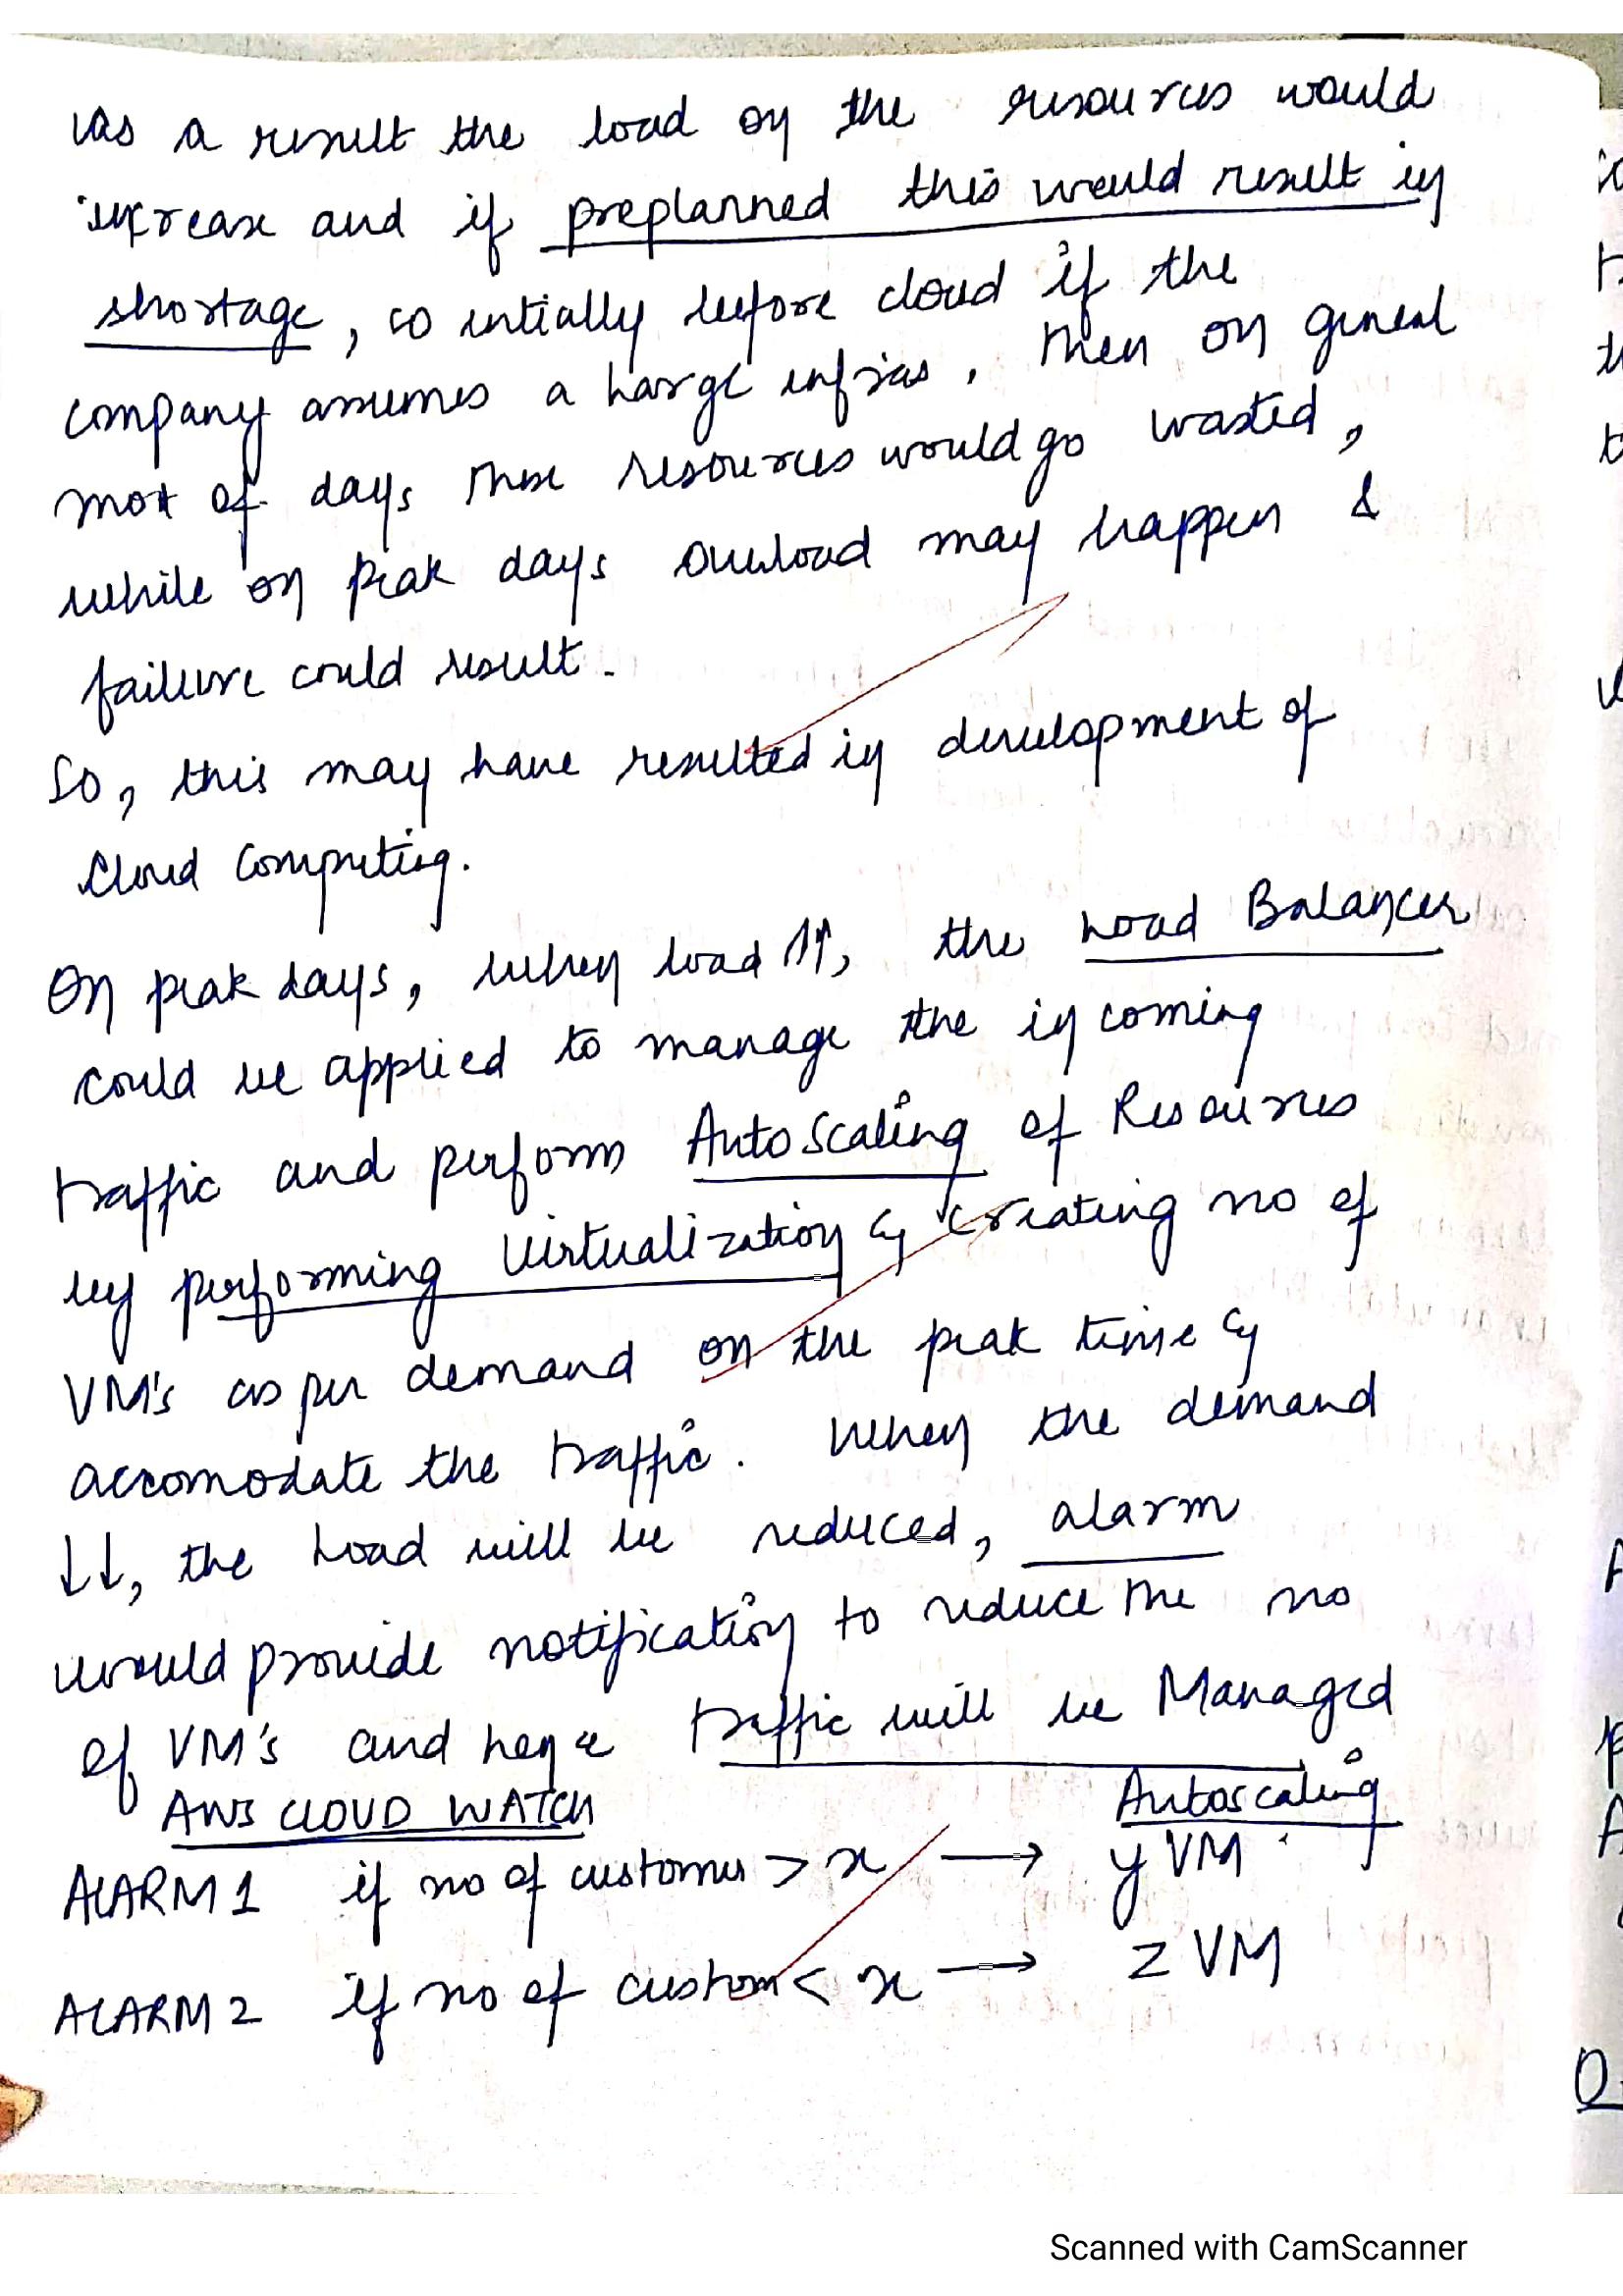 As a result the load on the resources would
increase and if preplanned this would result in
shortage, so intially before cloud if the
company assumes a large infras, then on general
most of days these resources would go wasted,
while on peak days overload may happen &
failure could result.
So, this may have resulted in development of
Cloud Computing.
On peak days, when load ↑↑, the Load Balancer
could be applied to manage the incoming
traffic and perform AutoScaling of Resources
by performing Virtualization & creating no of
VM's as per demand on the peak time &
accomodate the traffic. When the demand
↓↓, the load will be reduced, alarm
would provide notification to reduce the no
of VM's and hence traffic will be Managed
AWS CLOUD WATCH Autoscaling
ALARM 1 if no of customers > x → y VM
ALARM 2 if no of custom < x → z VM
Scanned with CamScanner